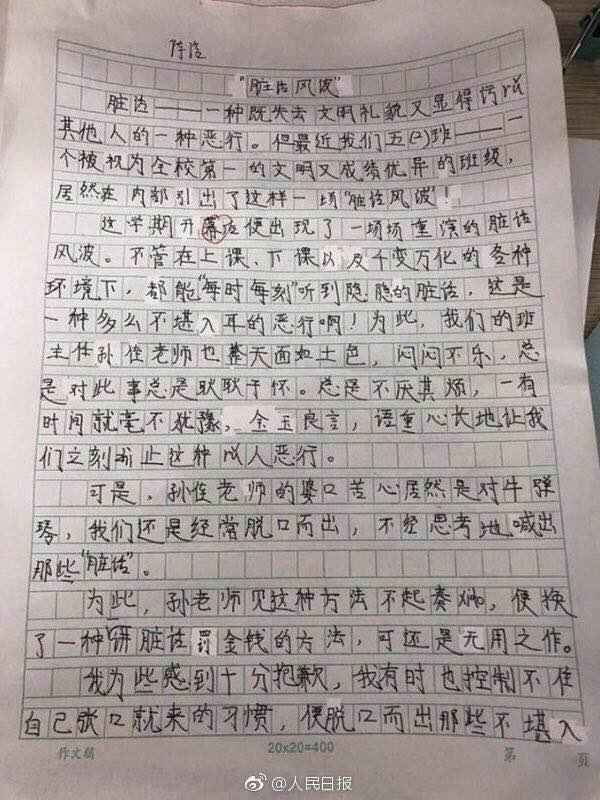 陈浩
“脏话风波”
脏话——一种既失去文明礼貌又显得污rǔ
其他人的一种恶行。但最近我们五(2)班——一
个被视为全校第一的文明又成绩优异的班级，
居然在内部引出了这样一场“脏话风波”！
这学期开幕后便出现了一场场重演的脏话
风波。不管在上课、下课以及千变万化的各种
环境下，都能“每时每刻”听到隐隐的脏话，这是
一种多么不堪入耳的恶行啊！为此，我们的班
主任孙佳老师也整天面如土色，闷闷不乐，总
是对此事总是耿耿于怀。总是不厌其烦，一有
时间就毫不犹豫，金玉良言，语重心长地让我
们立刻停止这种 人恶行。
可是，孙佳老师的婆口苦心居然是对牛弹
琴，我们还是经常脱口而出，不经思考地喊出
那些“脏话”。
为此，孙老师见这种方法不起奏效，便换
了一种“讲脏话罚金钱的方法，可还是无用之作。
我为些感到十分抱歉，我有时也控制不住
自己张口就来的习惯，便脱口而出那些不堪入
作文稿 20x20=400 第 页
@人民日报